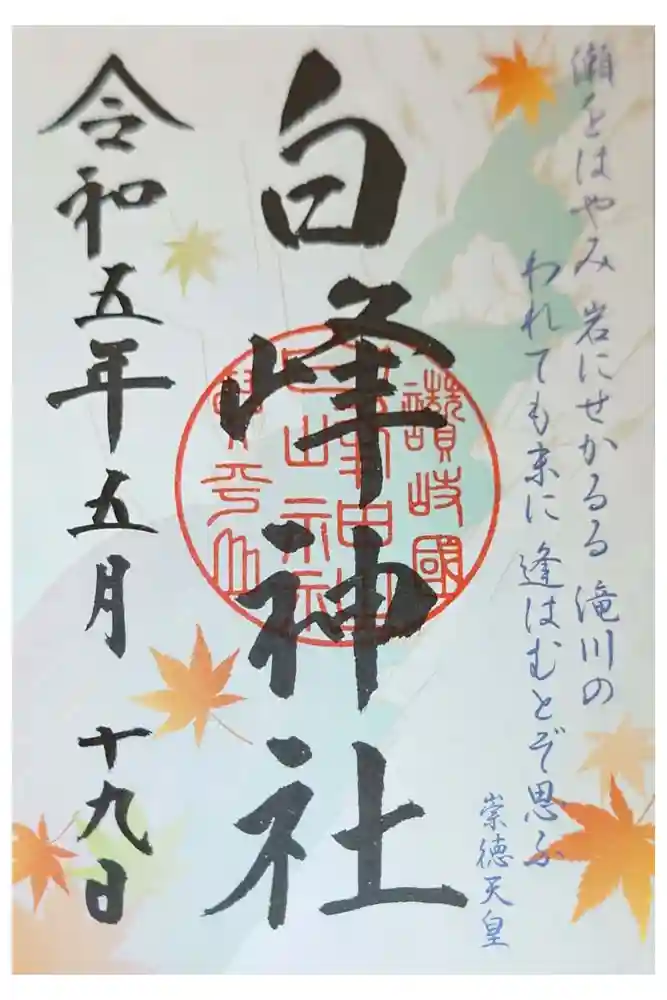 瀬をはやみ 岩にせかるる 滝川の
われても末に 逢はむとぞ思ふ
崇徳天皇
白峰神社
讃岐國
令和五年五月十九日